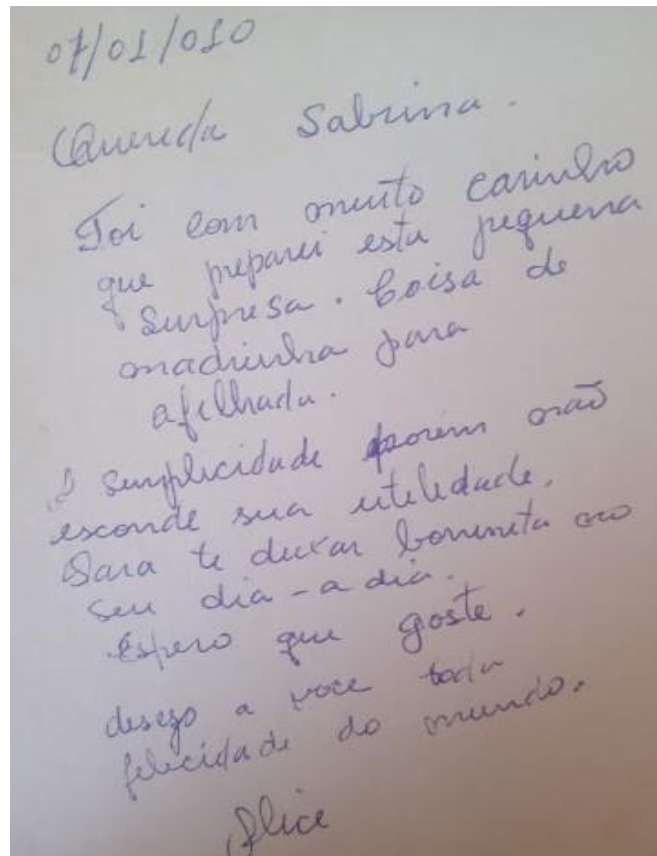 07/01/010
Querida Sabrina.
Foi com muito carinho
que preparei esta pequena
surpresa. Coisa de
madrinha para
afilhada.
A simplicidade porem não
esconde sua utelidade.
Para te deixar boninita no
seu dia-a dia.
Espero que goste.
desejo a voce toda
felicidade do mundo.
Alice